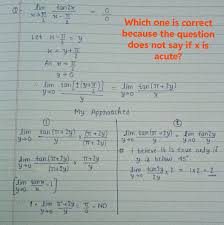 Q. lim x→π/2 tan2x / x - π/2 = 0/0
Which one is correct
because the question
does not say if x is
acute?
Let x - π/2 = y
x = y + π/2
As x → π/2
y → 0
= lim y→0 tan[2(y+π/2)] / y = lim y→0 tan(π+2y) / y
My Approaches
①
lim y→0 tan(π+2y)/y × (π+2y)/(π+2y)
lim y→0 tan(π+2y)/(π+2y) × (π+2y)/y
[lim x→0 tanx/x = 1]
1 · lim y→0 π+2y/y = π/0 = ND
②
lim y→0 tan(π+2y)/y = lim y→0 tan2y/y
# I believe it is true only if
y is below 45°
lim y→0 tan2y/2y × 2 = 1×2 = 2